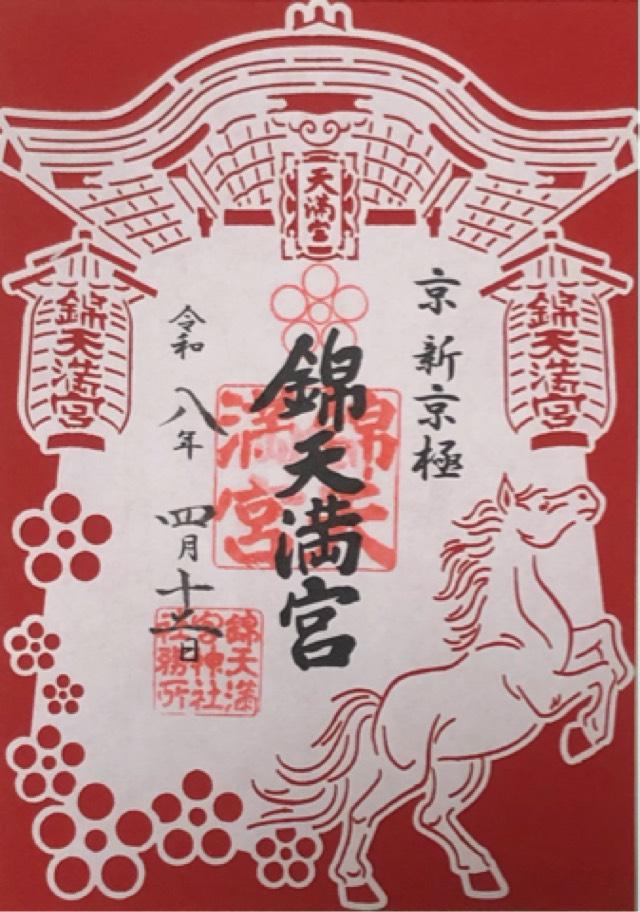 天満宮
錦天満宮
錦天満宮
京 新京極
錦天満宮
錦天満宮
令和八年 四月十日
錦天満
宮神社
社務所